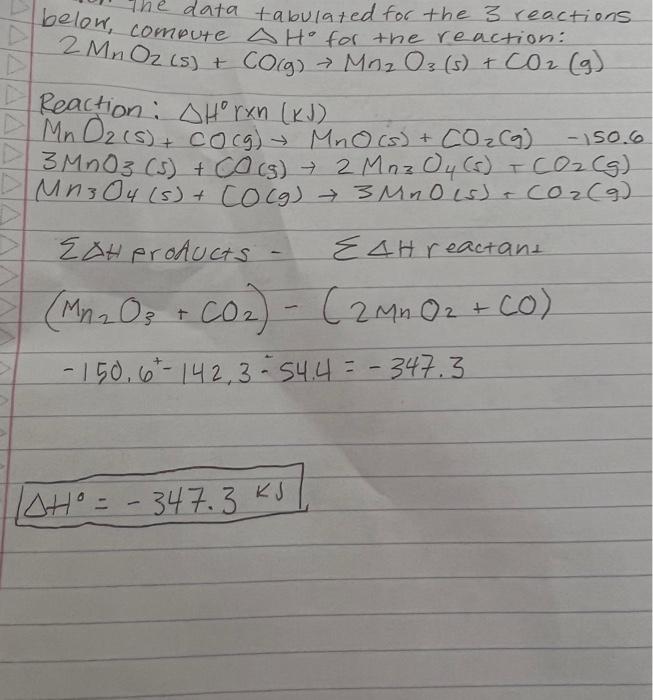 The data tabulated for the 3 reactions
below, compute ΔH° for the reaction:
2MnO2(s) + CO(g) → Mn2O3(s) + CO2(g)
Reaction: ΔH°rxn (kJ)
MnO2(s) + CO(g) → MnO(s) + CO2(g) -150.6
3MnO3(s) + CO(g) → 2Mn3O4(s) + CO2(g)
Mn3O4(s) + CO(g) → 3MnO(s) + CO2(g)
ΣΔH products - ΣΔH reactant
(Mn2O3 + CO2) - (2MnO2 + CO)
-150.6 + -142.3 - 54.4 = -347.3
ΔH° = -347.3 kJ